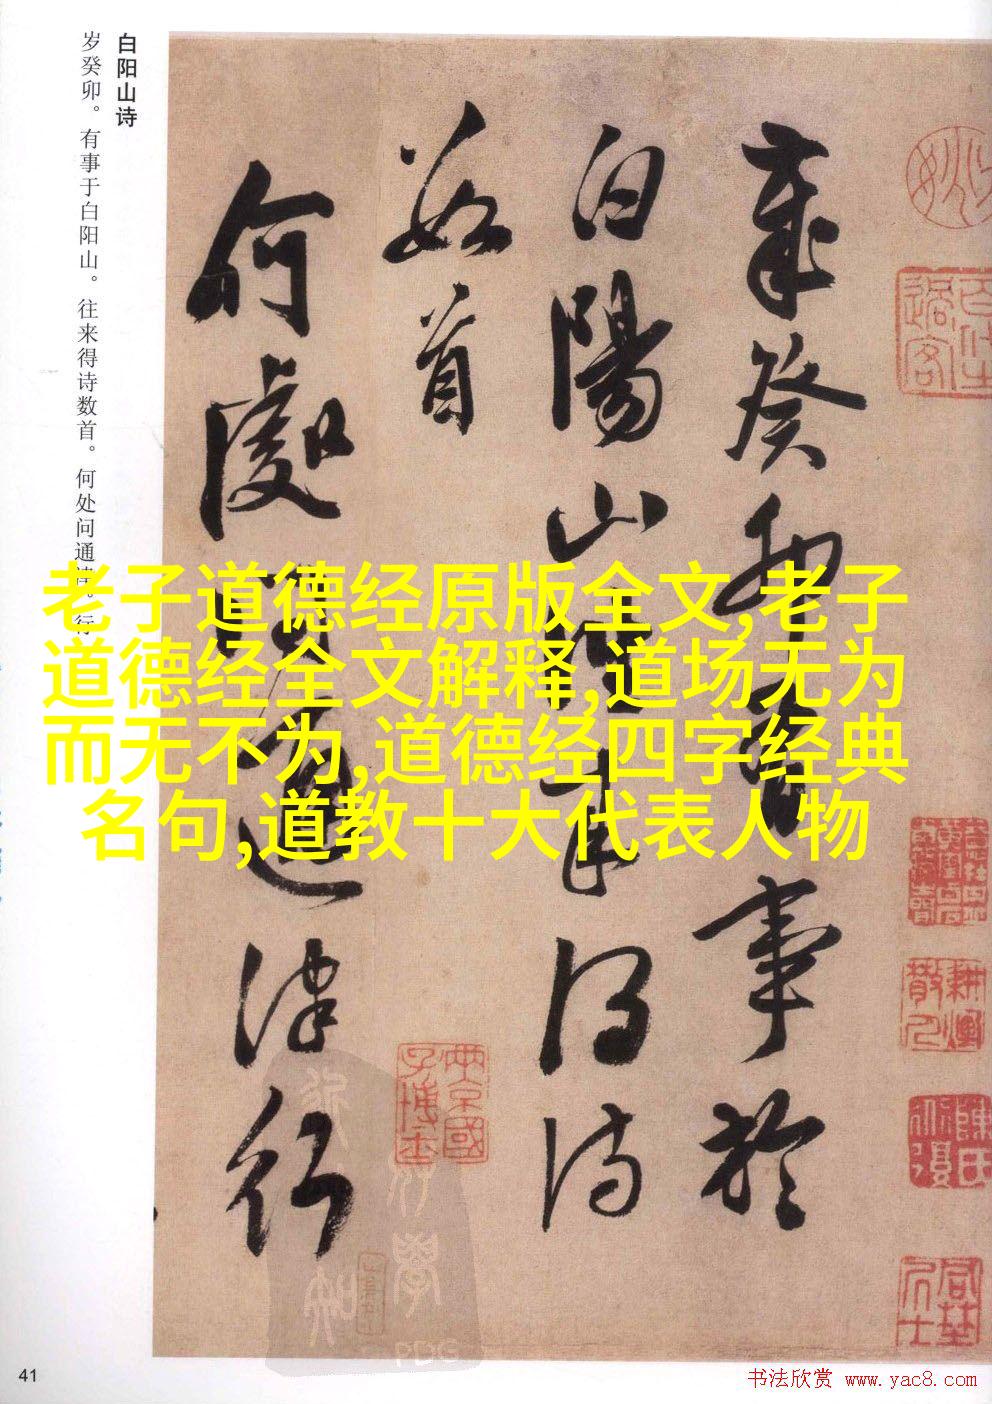 白阳山诗
岁癸卯。有事于白阳山。往来得诗数首。何处问通津。行
歲癸卯有事於
白陽山往來得詩
数首
何處問通津行
老子道德经原版全文,老子
道德经全文解释,道场无为
而无不为,道德经四字经典
名句,道教十大代表人物
耕煙
散人
陳氏
41
PDG
书法欣赏 www.yac8.com